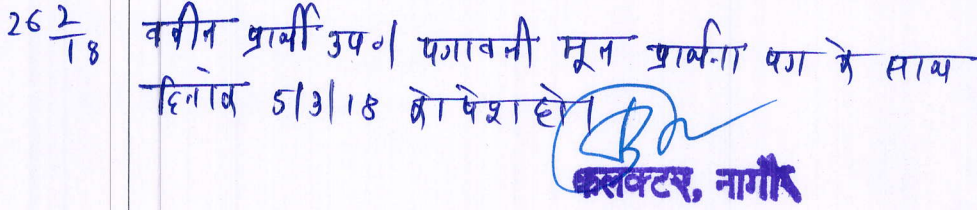 26 2/18 वकील प्रार्थी उप०। पत्रावली मूल प्रार्थना पत्र के साथ
दिनांक 5/3/18 को पेश हो।
कलक्टर, नागौर